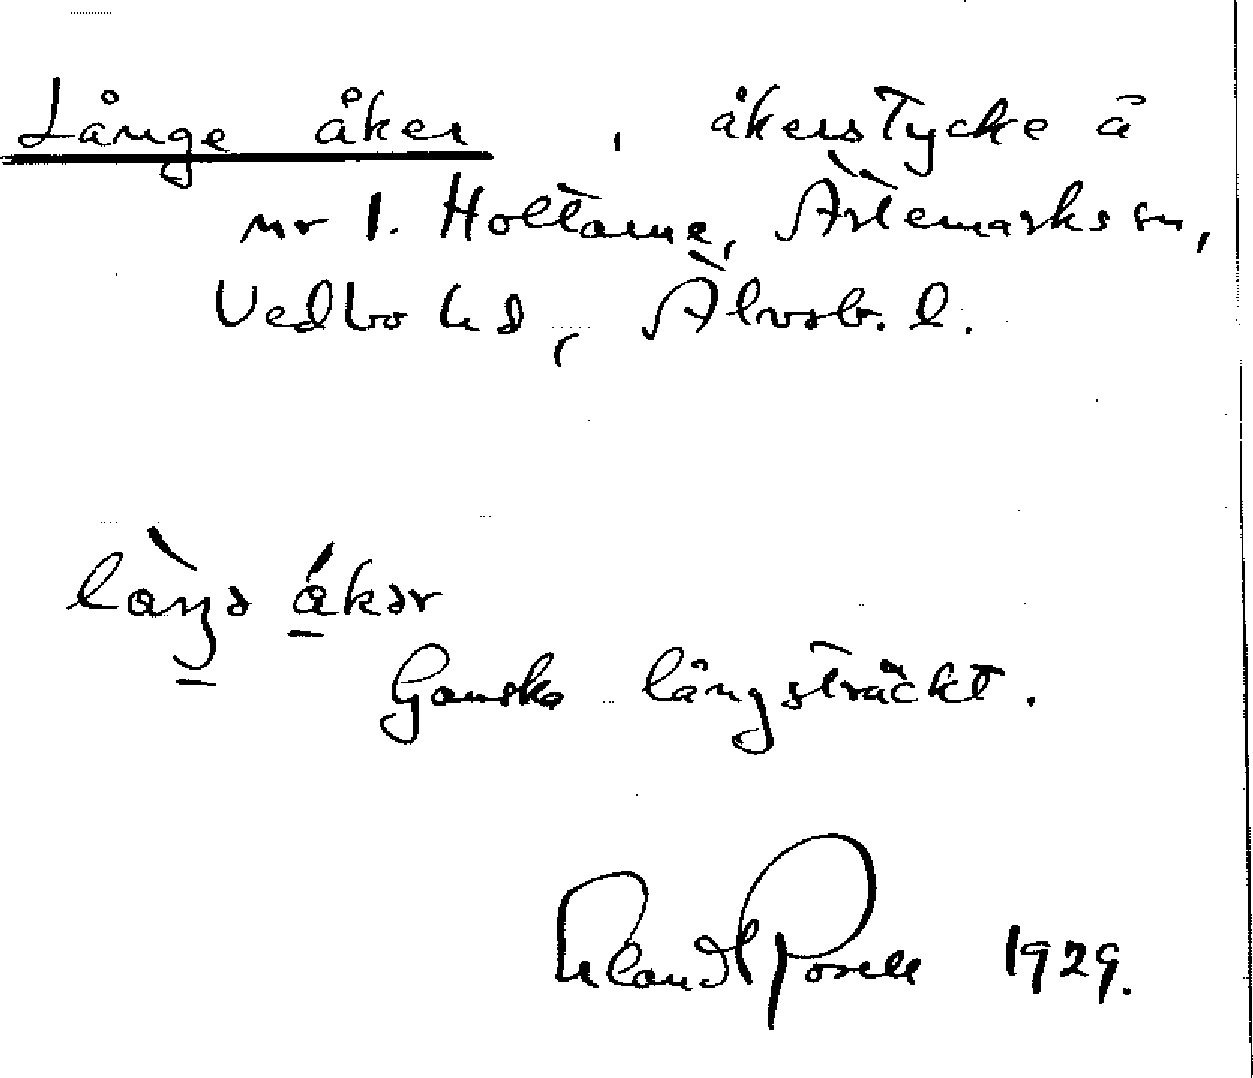 Långe åker, åkerstycke å
nr 1. Holtarne, Ärtemarks sn,
Vedbo hd, Älvsb. l.
làŋə ákər
Ganska långsträckt.
Erland Rosell 1929.